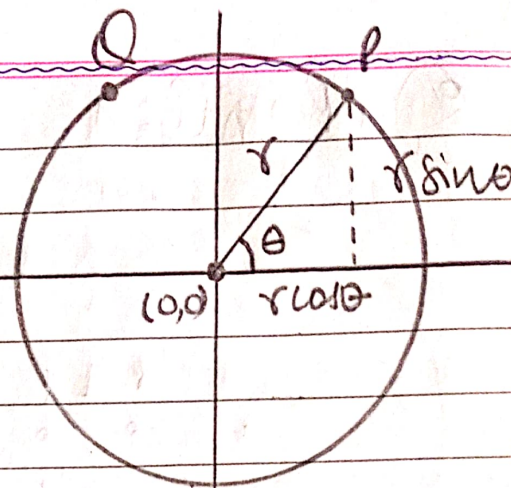 Q
P
r
r sinθ
θ
(0,0)
r cosθ